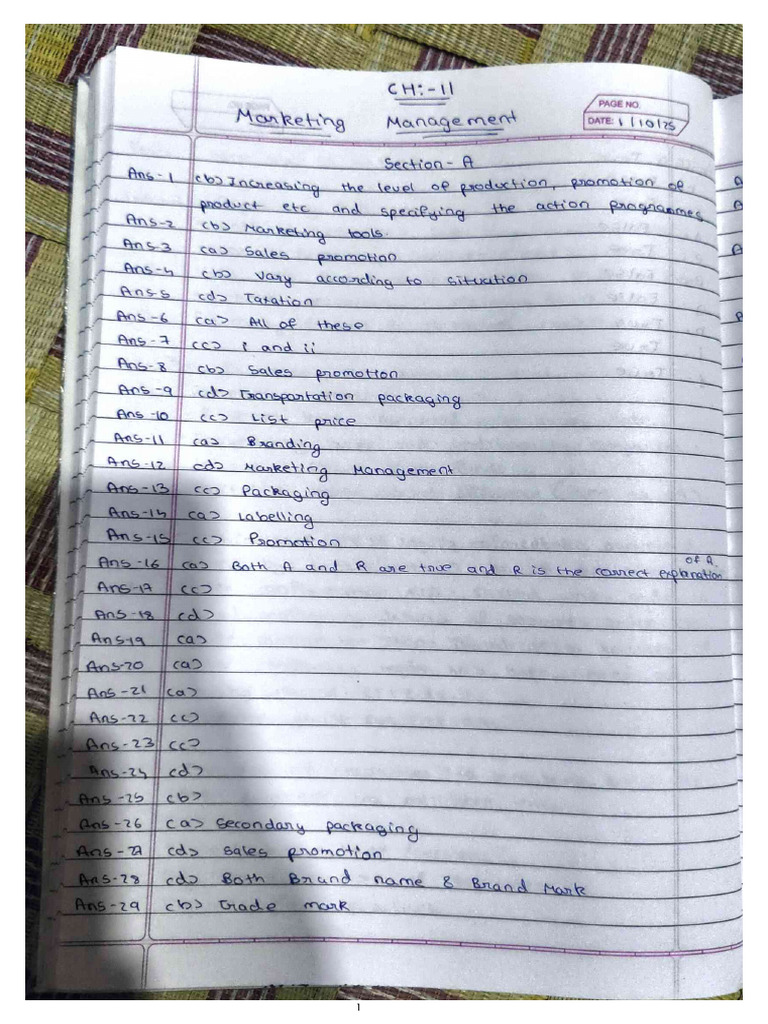 CH:-11
PAGE NO.
Marketing Management
DATE: 1/10/25
Section-A
Ans-1 (b) Increasing the level of production, promotion of
product etc and specifying the action programmes
Ans-2 (b) Marketing tools.
Ans-3 (a) Sales promotion
Ans-4 (b) Vary according to situation
Ans-5 (d) Taxation
Ans-6 (a) All of these
Ans-7 (c) i and ii
Ans-8 (b) Sales promotion
Ans-9 (d) Transportation packaging
Ans-10 (c) List price
Ans-11 (a) Branding
Ans-12 (d) Marketing Management
Ans-13 (c) Packaging
Ans-14 (a) Labelling
Ans-15 (c) Promotion
Ans-16 (a) Both A and R are true and R is the correct explanation of A.
Ans-17 (c)
Ans-18 (d)
Ans-19 (a)
Ans-20 (a)
Ans-21 (a)
Ans-22 (c)
Ans-23 (c)
Ans-24 (d)
Ans-25 (b)
Ans-26 (a) Secondary packaging
Ans-27 (d) Sales promotion
Ans-28 (d) Both Brand name & Brand Mark
Ans-29 (b) Trade mark
1